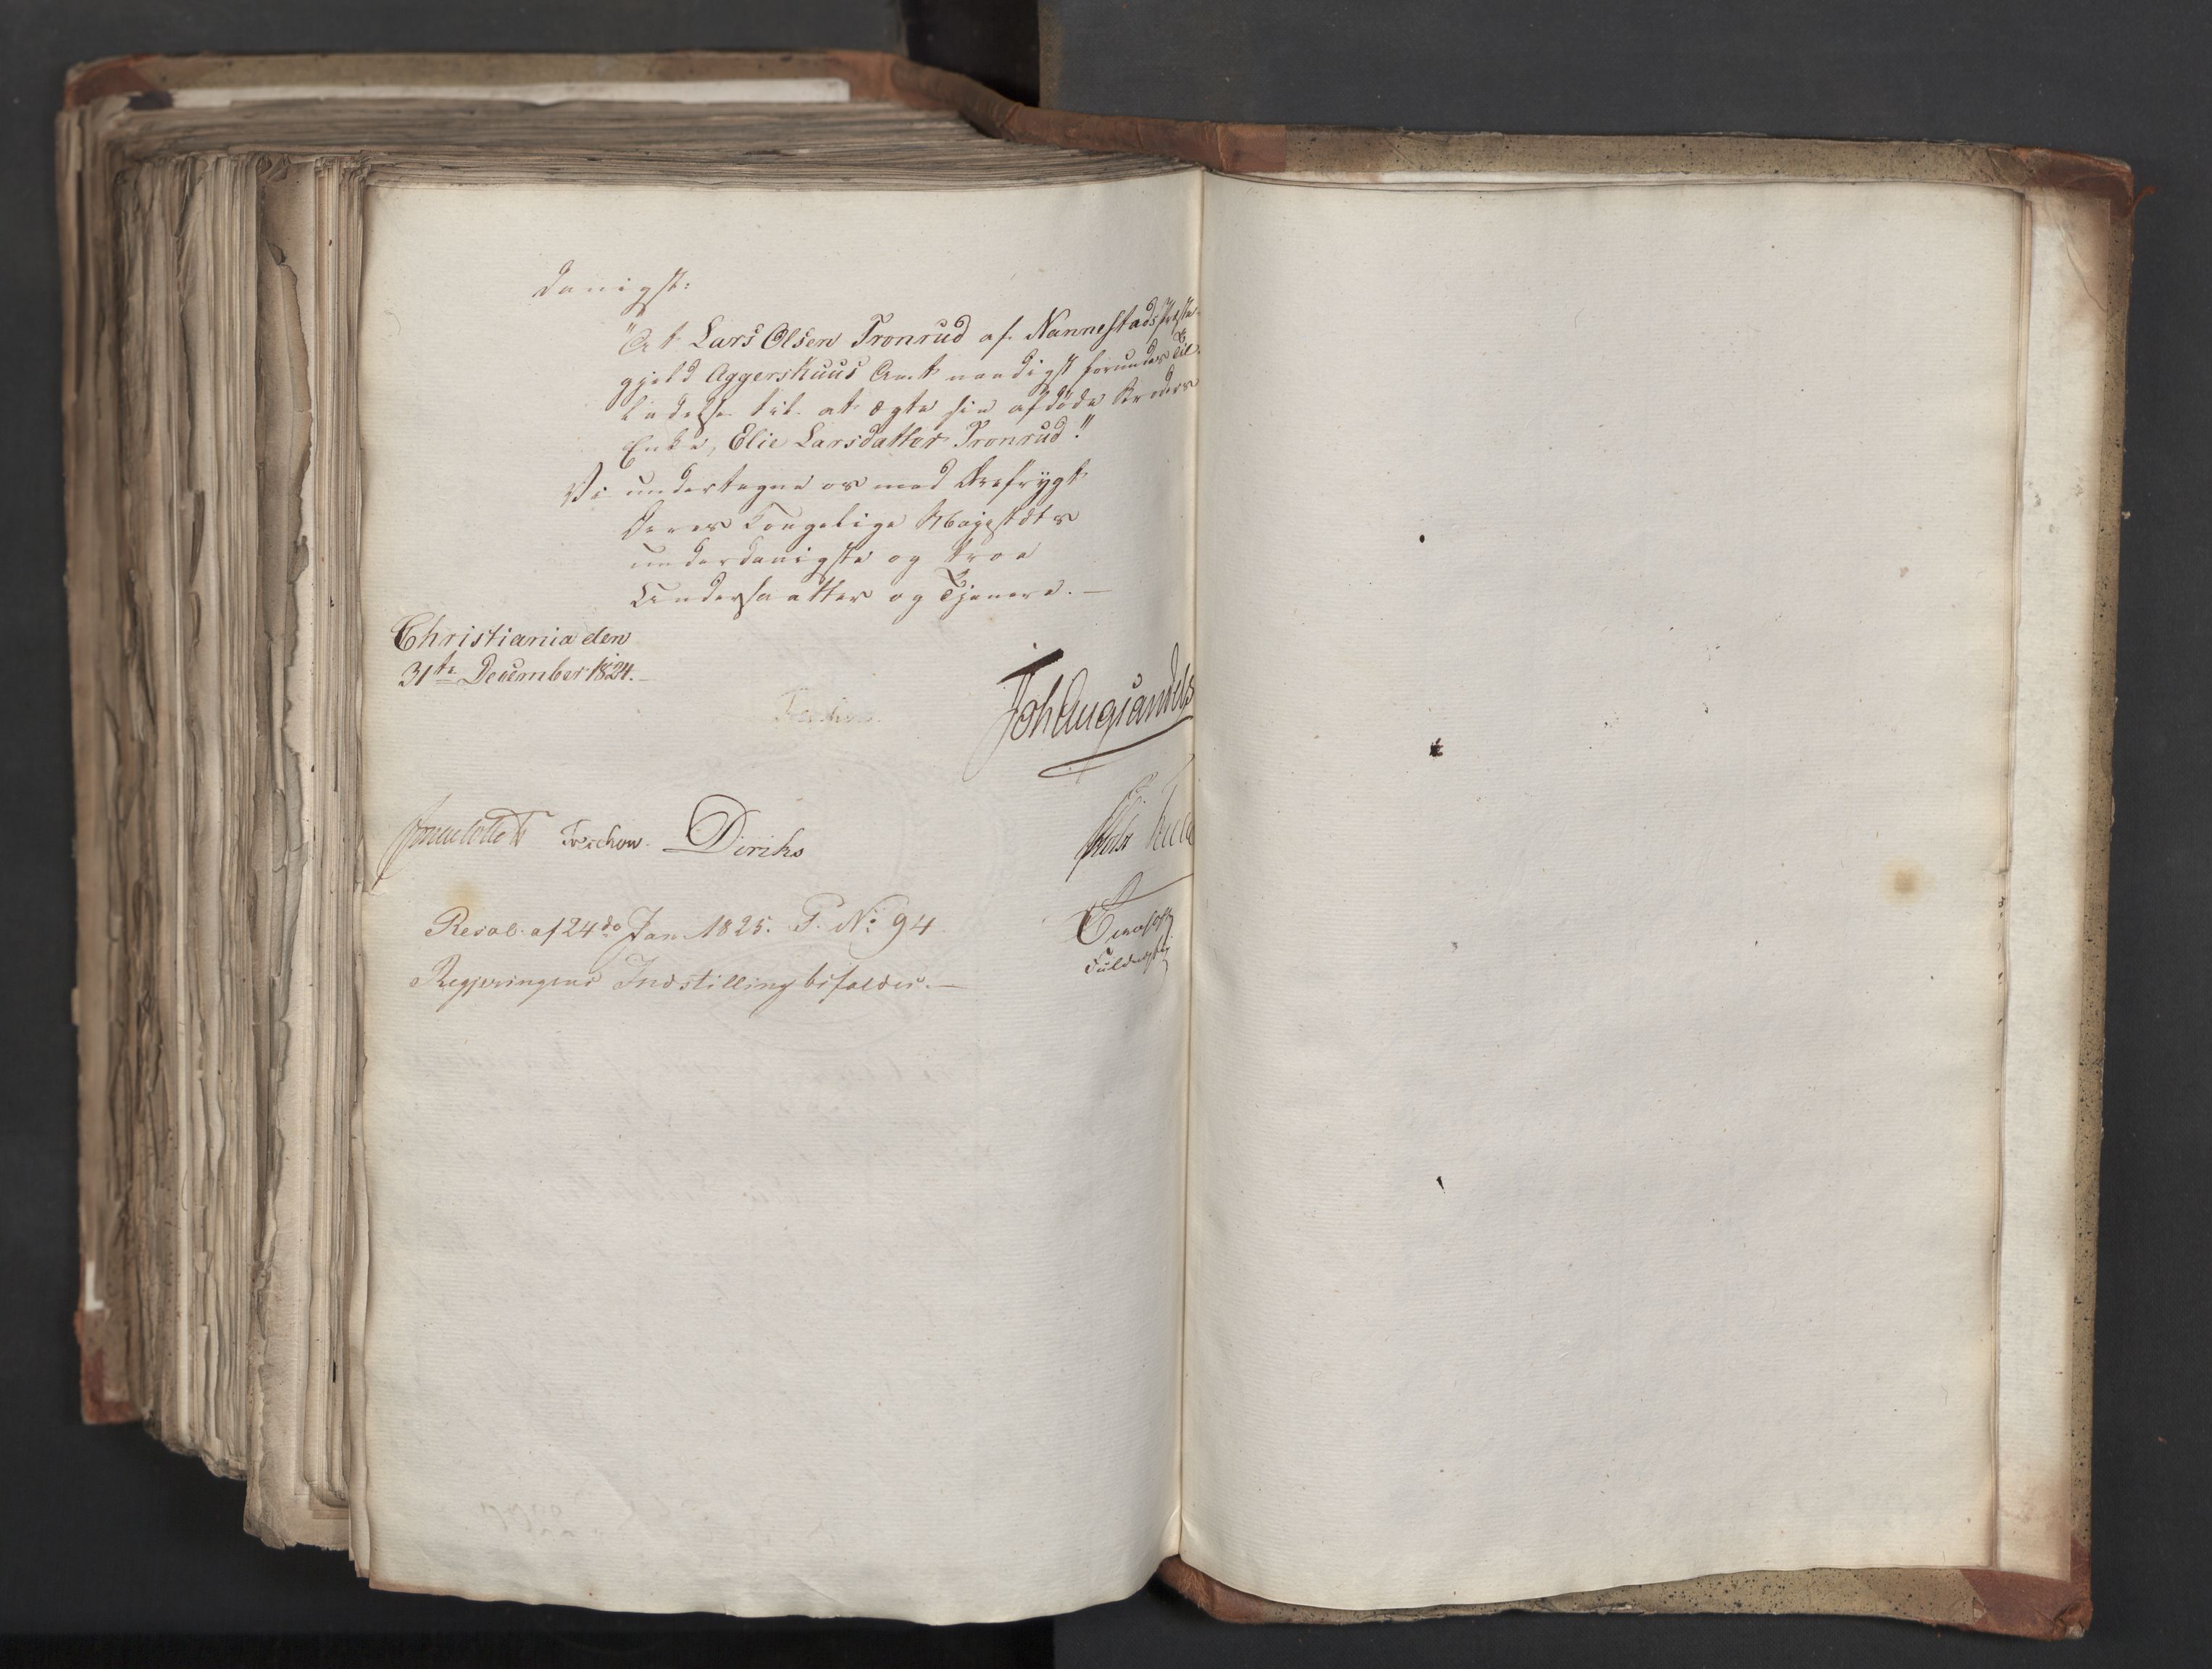 danigst:
"At Lars Olsen Tronrud af Nannestads Præste-
gjeld Aggershuus Amt naadigst forundes Til-
ladelse til at ægte sin afdøde Broders
Enke, Elie Larsdatter Tronrud."
Vi undertegne os med Ærefrygt
Deres Kongelige Majestæts
underdanigste og troe
Undersaatter og Tjenere. —
Christiania den
31te December 1824. —
Treschow.
Joh Aug Sandels
Sommerfeldt Treschow. Diriks
Resol. af 24de Jan. 1825. P. No 94
Regjeringens Indstilling bifaldes. —